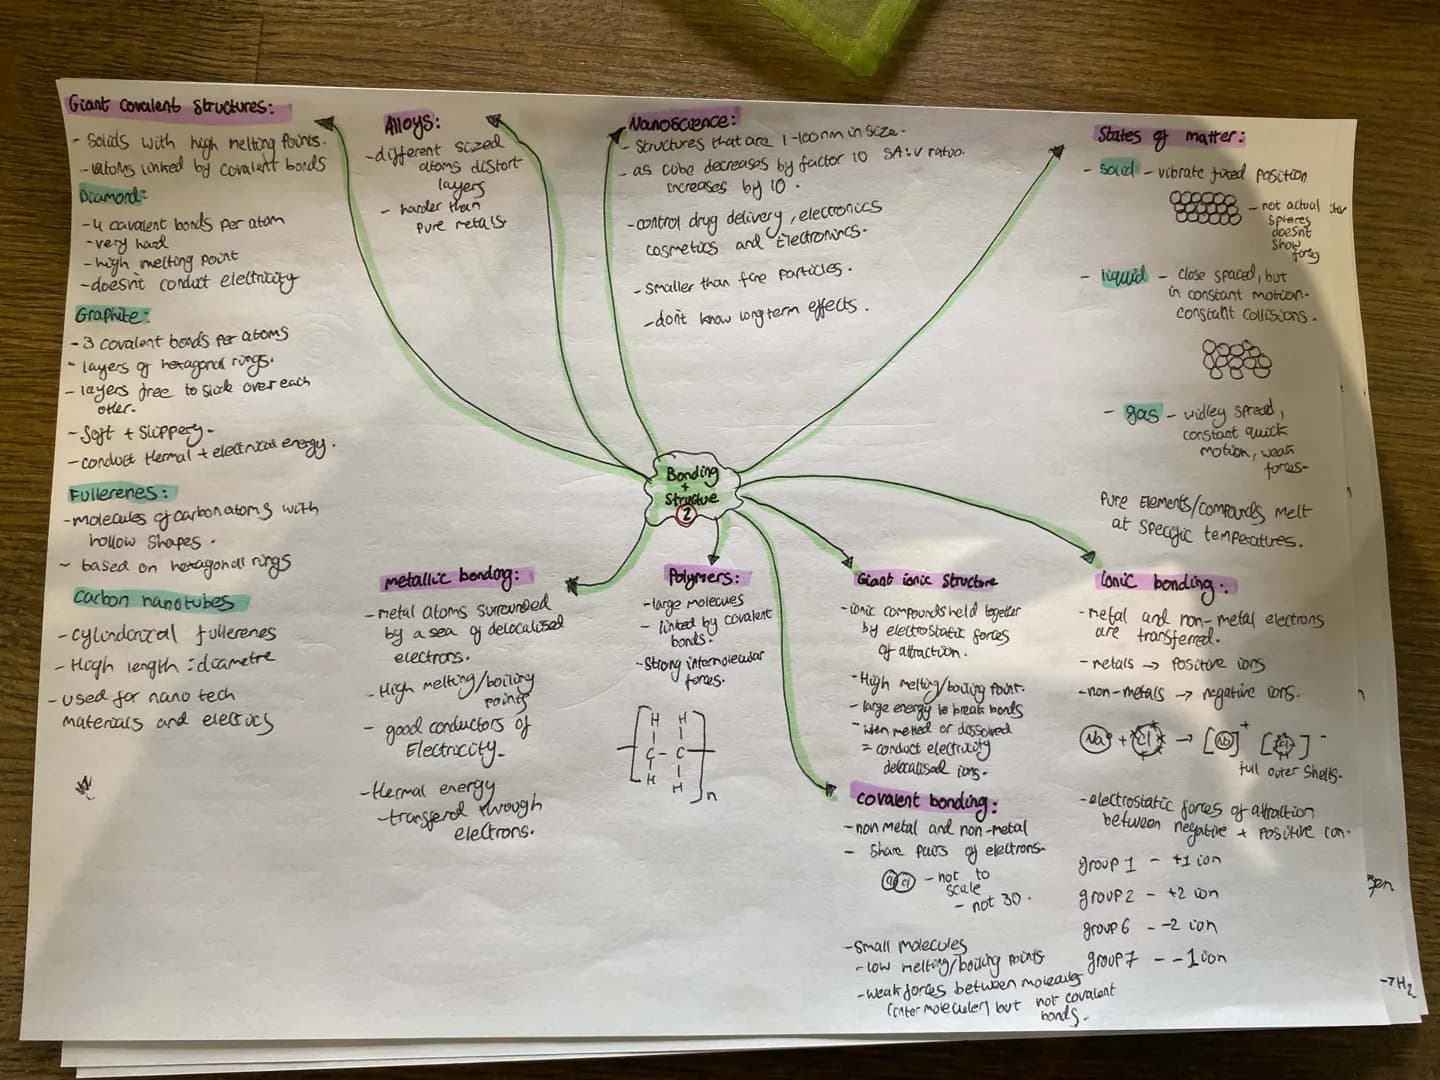 Giant Covalent Structures:
- Solids with high melting points.
- atoms linked by covalent bonds
Diamond:
- 4 covalent bonds per atom
- very hard
- high melting point
- doesn't conduct electricity
Graphite:
- 3 covalent bonds per atoms
- layers of hexagonal rings.
- layers free to slide over each
other.
- Soft + Slippery -
- conduct thermal + electrical energy.
Fullerenes:
- molecules of carbon atoms with
hollow shapes.
~ based on hexagonal rings
Carbon nanotubes
- cylindorical fullerenes
- High length : diametre
- used for nano tech
materials and
Alloys:
- different sized
atoms distort
layers
- harder than
pure metals
Nanoscience:
- Structures that are 1-100nm in size.
- as cube decreases by factor 10 SA:V ratio
increases by 10.
- control drug delivery, electronics
cosmetics and Electronics.
- smaller than fine particles.
- don't know long term effects.
States of matter:
- solid - vibrate fixed position
- not actual
spheres
doesn't
show
- liquid - close spaced, but
in constant motion -
constant collisions.
- gas - widley spread,
constant quick
motion, weak
forces -
Pure Elements/compounds melt
at specific temperatures.
Bonding
+
Structue
2
metallic bonding:
- metal atoms surrounded
by a sea of delocalised
electrons.
- High melting/boiling
points
- good conductors of
Electricity -
- thermal energy
- transferd through
electrons.
Polymers:
- large molecules
- linked by covalent
bonds.
- Strong intermolecular
forces.
H H
C - C
H H
n
Giant ionic Structure
- ionic compounds held together
by electrostatic forces
of attraction.
- High melting/boiling point.
- large energy to break bonds
- when melted or dissolved
= conduct electricity
delocalised ions.
Covalent bonding:
- non metal and non-metal
- Share pairs of electrons -
- not to
scale
- not 3D.
- Small molecules
- low melting/boiling points
- weak forces between molecules
but not covalent
bonds.
Ionic bonding:
- metal and non-metal electrons
are transferred.
- metals → positive ions
- non-metals → negative ions.
Na + Cl → [Na]+ [Cl]-
full outer shells.
- electrostatic forces of attraction
between negative + positive ion.
group 1 - +1 ion
group 2 - +2 ion
group 6 - -2 ion
group 7 - -1 ion
→ H2